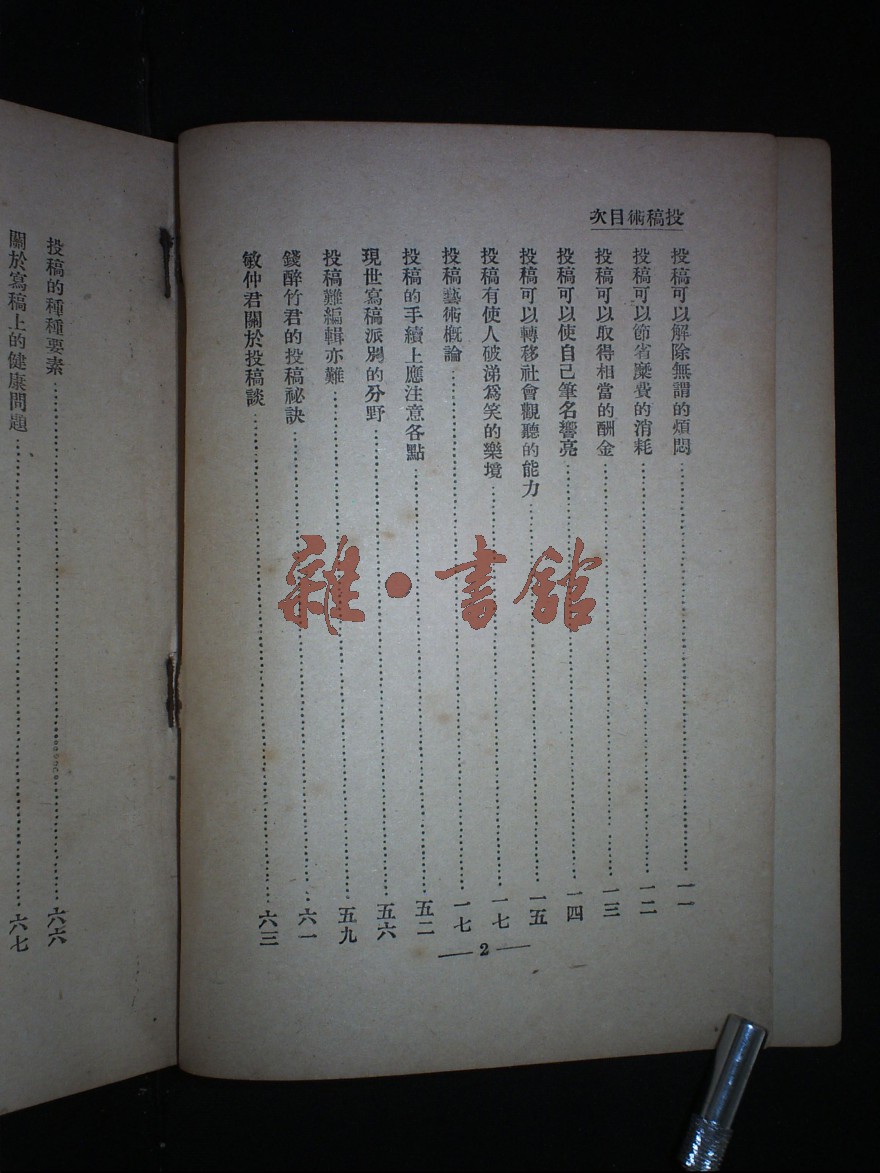 投稿術目次
投稿可以解除無謂的煩悶…………一一
投稿可以節省糜費的消耗…………一二
投稿可以取得相當的酬金…………一三
投稿可以使自己筆名響亮…………一四
投稿可以轉移社會觀聽的能力…………一五
投稿有使人破涕爲笑的樂境…………一七
投稿藝術槪論…………一七
投稿的手續上應注意各點…………五二
現世寫稿派別的分野…………五六
投稿難編輯亦難…………五九
錢醉竹君的投稿祕訣…………六一
敏仲君關於投稿談…………六三
— 2 —
投稿的種種要素…………六六
關於寫稿上的健康問題…………六七
雜·書館